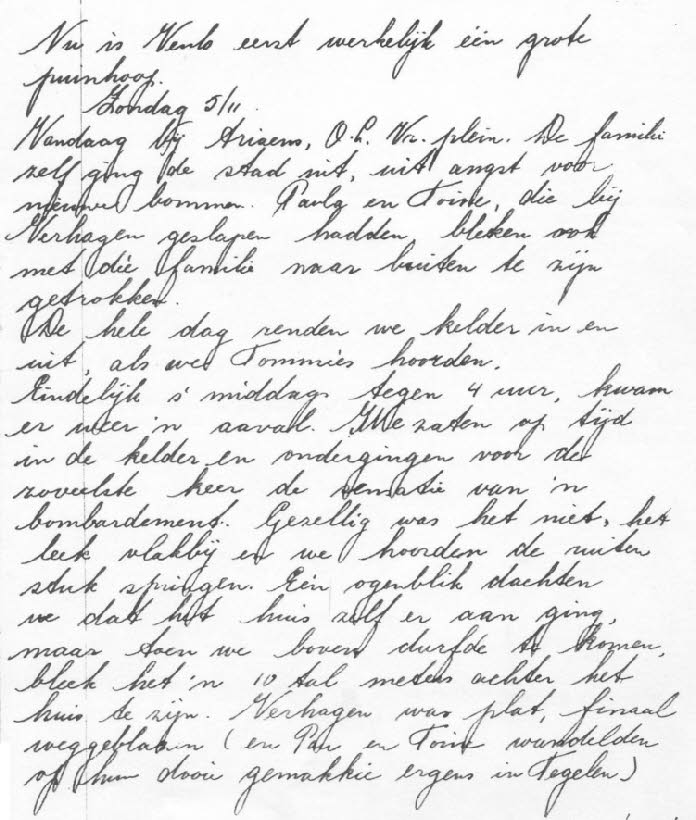 Nu is Venlo eerst werkelijk één grote
puinhoop.
Zondag 5/11.
Vandaag bij Ariaens, O.L. Vr. plein. De familie
zelf ging de stad uit, uit angst voor
nieuwe bommen. Paula en Toine, die bij
Verhagen geslapen hadden, bleken ook
met die familie naar buiten te zijn
getrokken.
De hele dag renden we kelder in en
uit, als we Tommies hoorden.
Eindelijk s' middags tegen 4 uur, kwam
er weer 'n aaval. We zaten op tijd
in de kelder en ondergingen voor de
zoveelste keer de sensatie van 'n
bombardement. Gezellig was het niet, het
leek vlakbij en we hoorden de ruiten
stuk springen. Eén ogenblik dachten
we dat het huis zelf er aan ging,
maar toen we boven durfde te komen,
bleek het 'n 10 tal meters achter het
huis te zijn. Verhagen was plat, finaal
weggeblazen (en Pau en Toine wandelden
op hun dooie gemakkie ergens in Tegelen)